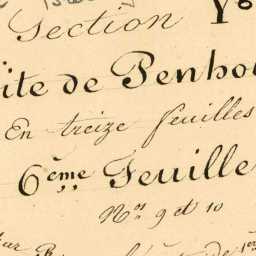 Section Yº
ite de Penho
En treize feuilles
6ème Feuille
Nos 9 et 10